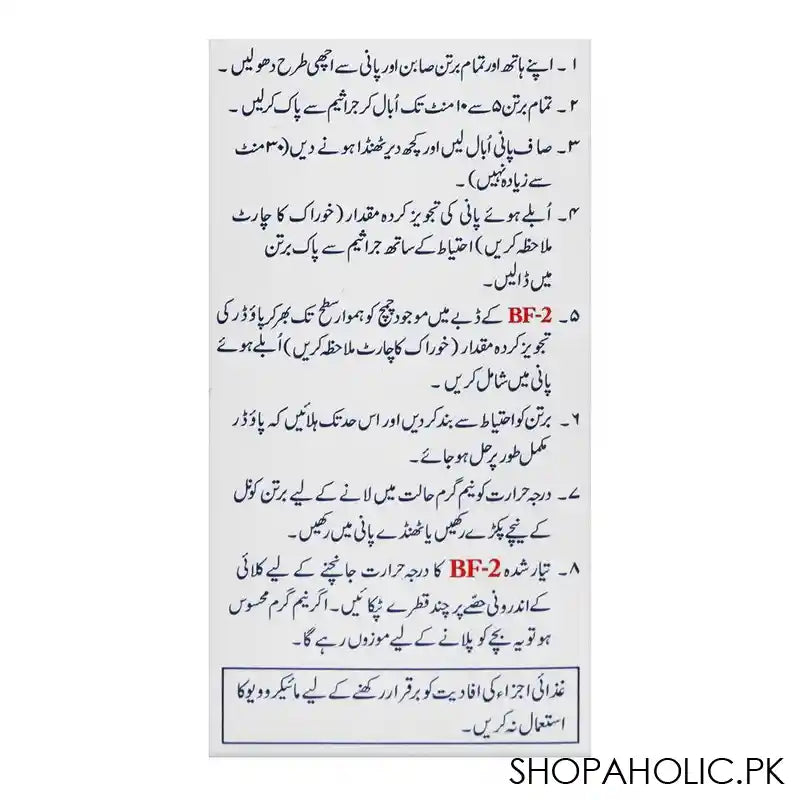 ۱ ۔ اپنے ہاتھ اور تمام برتن صابن اور پانی سے اچھی طرح دھولیں ۔
۲ ۔ تمام برتن ۵ سے ۱۰ منٹ تک اُبال کر جراثیم سے پاک کرلیں ۔
۳ ۔ صاف پانی اُبال لیں اور کچھ دیر ٹھنڈا ہونے دیں (۳۰ منٹ
سے زیادہ نہیں) ۔
۴ ۔ اُبلے ہوئے پانی کی تجویز کردہ مقدار (خوراک کا چارٹ
ملاحظہ کریں) احتیاط کے ساتھ جراثیم سے پاک برتن
میں ڈالیں ۔
۵ ۔ BF-2 کے ڈبے میں موجود چمچ کو ہموار سطح تک بھر کر پاؤڈر کی
تجویز کردہ مقدار (خوراک کا چارٹ ملاحظہ کریں) اُبلے ہوئے
پانی میں شامل کریں ۔
۶ ۔ برتن کو احتیاط سے بند کر دیں اور اس حد تک ہلائیں کہ پاؤڈر
مکمل طور پر حل ہو جائے ۔
۷ ۔ درجہ حرارت کو نیم گرم حالت میں لانے کے لیے برتن کو نل
کے نیچے پکڑے رکھیں یا ٹھنڈے پانی میں رکھیں ۔
۸ ۔ تیار شدہ BF-2 کا درجہ حرارت جانچنے کے لیے کلائی
کے اندرونی حصّے پر چند قطرے ٹپکائیں ۔ اگر نیم گرم محسوس
ہو تو یہ بچے کو پلانے کے لیے موزوں رہے گا ۔
غذائی اجزاء کی افادیت کو برقرار رکھنے کے لیے مائیکرو ویو کا
استعمال نہ کریں ۔
SHOPAHOLIC.PK